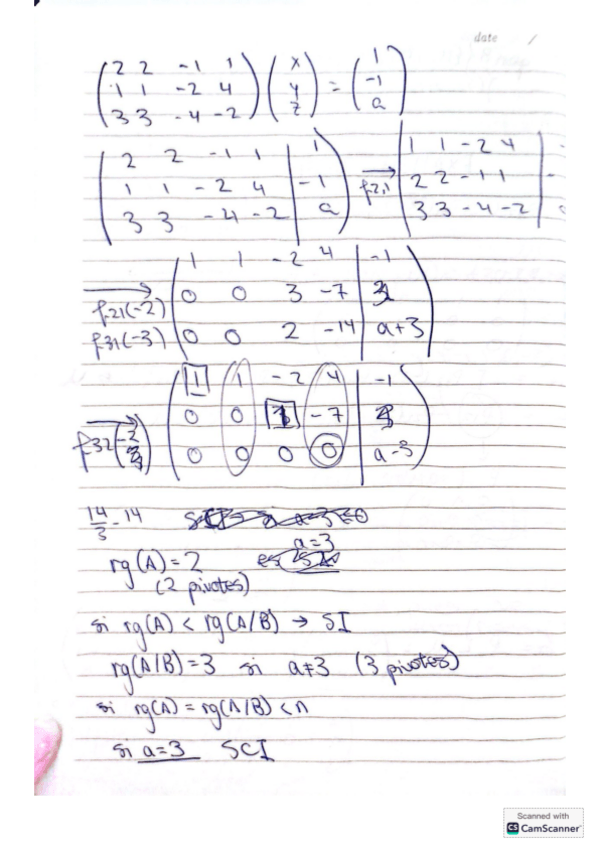 date /
( 2 2 -1 1
1 1 -2 4
3 3 -4 -2 ) ( x
y
z ) = ( 1
-1
a )
( 2 2 -1 1 | 1
1 1 -2 4 | -1
3 3 -4 -2 | a )
→ f2,1
| 1 1 -2 4 |
2 2 -1 1 |
3 3 -4 -2 |
→ f21(-2)
f31(-3)
( 1 1 -2 4 | -1
0 0 3 -7 |
0 0 2 -14 | a+3 )
→
( 1 1 -2 4 | -1
0 0 -7 |
0 0 0 0 | a-3 )
14/3 - 14
a=3
rg(A) = 2
(2 pivotes)
si rg(A) < rg(A/B) → SI
rg(A/B) = 3 si a≠3 (3 pivotes)
si rg(A) = rg(A/B) < n
si a=3 SCI
Scanned with
CS CamScanner